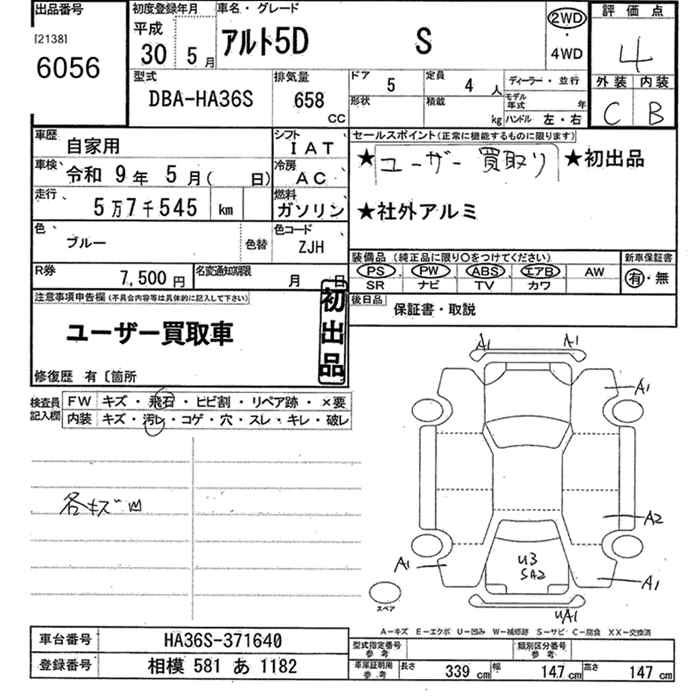 出品番号 初度登録年月 車名・グレード 2WD 評価点
[2138] 平成
6056 30 5月 アルト5D S 4WD 4
型式 排気量 ドア 5 定員 4人 ディーラー・並行 外装 内装
DBA-HA36S 658 CC 形状 積載 kg モデル年式 年 ハンドル 左・右 C B
車歴 自家用 シフト IAT セールスポイント(正常に機能するものに限ります)
車検 令和 9年 5月( 日) 冷房 AC ★ユーザー買取り ★初出品
走行 5万7千545 km 燃料 ガソリン ★社外アルミ
色 ブルー 色替 色コード ZJH 装備品 (純正品に限り〇をつけてください) 新車保証書
PS PW ABS エアB AW 有・無
R券 7,500円 名変通知期限 月 日 SR ナビ TV カワ
注意事項申告欄(不具合内容等は具体的に記入して下さい) 後日品 保証書・取説
ユーザー買取車 初出品
修復歴 有〔箇所
検査員記入欄 FW キズ・飛石・ヒビ割・リペア跡・×要
内装 キズ・汚レ・コゲ・穴・スレ・キレ・破レ
A1 A1
A1
各キズ凹
A2
A1 U3 SA2 A1
スペア UA1
A-キズ E-エクボ U-凹み W-補修跡 S-サビ C-腐食 XX-交換済
車台番号 HA36S-371640 型式指定番号 参考 類別区分番号 参考
登録番号 相模 581 あ 1182 車庫証明用 参考 長さ 339 cm 幅 147 cm 高さ 147 cm